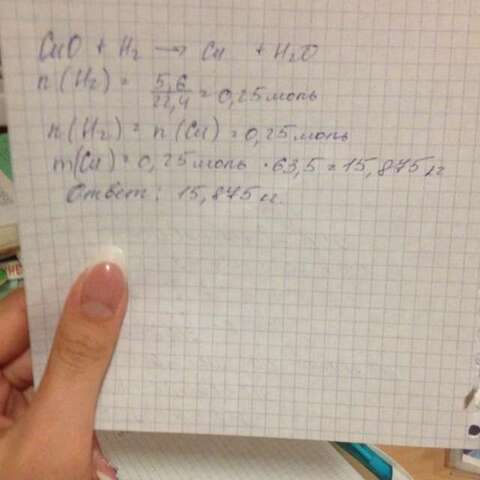 CuO + H₂ → Cu + H₂O
n(H₂) = 5,6/22,4 = 0,25моль
n(H₂) = n(Cu) = 0,25моль
m(Cu) = 0,25моль · 63,5 = 15,875 г
Ответ: 15,875 г.